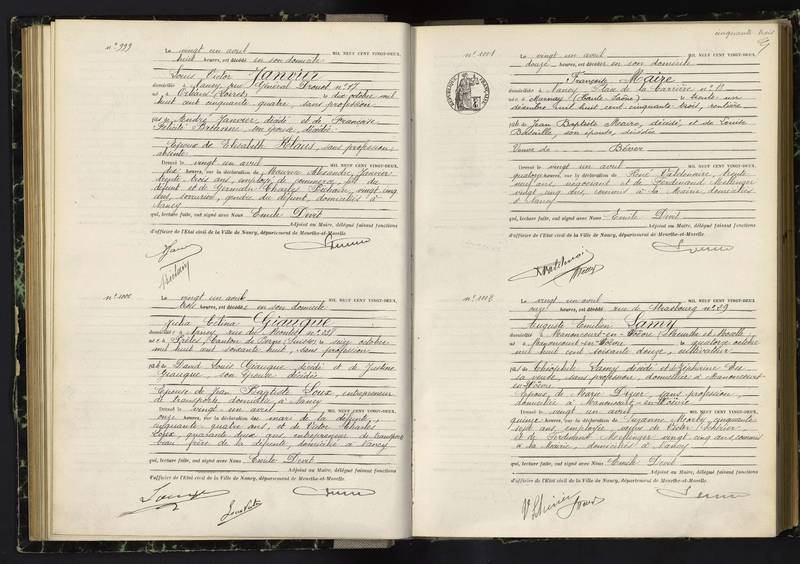 N° 999
Le vingt un avril MIL NEUF CENT VINGT-DEUX,
huit heures, est décédé en son domicile
Louis Victor Janvier
domicilié à Nancy, rue Général Drouot n° 17
né à Orléans (Loiret) le dix octobre mil
huit cent cinquante quatre, sans profession
fils de André Janvier décédé et de Françoise
Félicité son épouse, décédée.
Epoux de Elisabeth Klaus, sans profession,
absente
Dressé le vingt un avril MIL NEUF CENT VINGT-DEUX,
dix heures, sur la déclaration de Maurice Alexandre Janvier
trente trois ans, employé de commerce, fils du
défunt et de Germain Charles vingt cinq
ans, serrurier, gendre du défunt, domiciliés à
Nancy
qui, lecture faite, ont signé avec Nous Emile Devit
Adjoint au Maire, délégué faisant fonctions
d'officier de l'Etat civil de la Ville de Nancy, département de Meurthe-et-Moselle.
N° 1000
Le vingt un avril MIL NEUF CENT VINGT-DEUX,
trois heures, est décédée en son domicile
Julia Célina Giauque
domiciliée à Nancy, rue des
née à Prêles (Canton de Berne, Suisse) le seize octobre
mil huit cent soixante huit, sans profession
fille de David Louis Giauque décédé et de Justine
Giauque, son épouse décédée
Epouse de Jean Baptiste Loux, entrepreneur
de transports domicilié à Nancy
Dressé le vingt un avril MIL NEUF CENT VINGT-DEUX,
onze heures, sur la déclaration du mari de la défunte
cinquante quatre ans, et de Victor Charles
Loux quarante deux ans entrepreneur de transports
beau frère de la défunte, domiciliés à Nancy
qui, lecture faite, ont signé avec Nous Emile Devit
Adjoint au Maire, délégué faisant fonctions
d'officier de l'Etat civil de la Ville de Nancy, département de Meurthe-et-Moselle.
cinquante trois
N° 1001
Le vingt un avril MIL NEUF CENT VINGT-DEUX,
douze heures, est décédée en son domicile
Françoise Maire
domiciliée à Nancy, Place de la Carrière n° 12
née à Marnay (Haute Saône) le trente un
décembre mil huit cent cinquante trois, rentière
fille de Jean Baptiste Maire, décédé, et de Louise
Bataille, son épouse, décédée
Veuve de Bever
Dressé le vingt un avril MIL NEUF CENT VINGT-DEUX,
quatorze heures, sur la déclaration de René Valdenaire, trente
neuf ans, négociant et de Ferdinand Mellinger
vingt cinq ans, commis à la Mairie domiciliés
à Nancy
qui, lecture faite, ont signé avec Nous Emile Devit
Adjoint au Maire, délégué faisant fonctions
d'officier de l'Etat civil de la Ville de Nancy, département de Meurthe-et-Moselle.
N° 1002
Le vingt un avril MIL NEUF CENT VINGT-DEUX,
onze heures, est décédé rue de Strasbourg n° 39
Auguste Emilien Lamy
domicilié à Manoncourt-en-Woëvre (Meurthe et Moselle)
né à le quatorze octobre
mil huit cent soixante douze, cultivateur
fils de Théophile Lamy décédé et de Zéphirine
sa veuve, sans profession, domiciliée à Manoncourt-
en-Woëvre
Epoux de Marie sans profession,
domiciliée à Manoncourt-en-Woëvre
Dressé le vingt un avril MIL NEUF CENT VINGT-DEUX,
quinze heures, sur la déclaration de Suzanne cinquante
sept ans, employée, veuve de Victor
et de Ferdinand Mellinger vingt cinq ans commis
à la Mairie, domiciliés à Nancy
qui, lecture faite, ont signé avec Nous Emile Devit
Adjoint au Maire, délégué faisant fonctions
d'officier de l'Etat civil de la Ville de Nancy, département de Meurthe-et-Moselle.